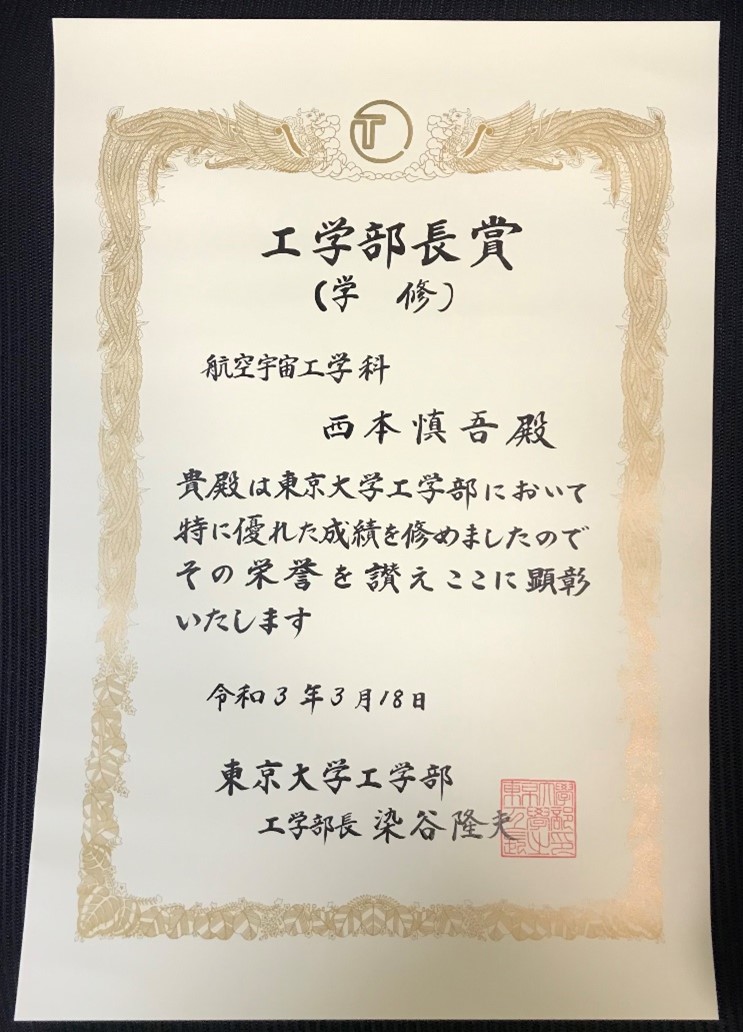 T
工学部長賞
(学 修)
航空宇宙工学科
西本慎吾殿
貴殿は東京大学工学部において
特に優れた成績を修めましたので
その栄誉を讃えここに顕彰
いたします
令和3年3月18日
東京大学工学部
工学部長 染谷隆夫